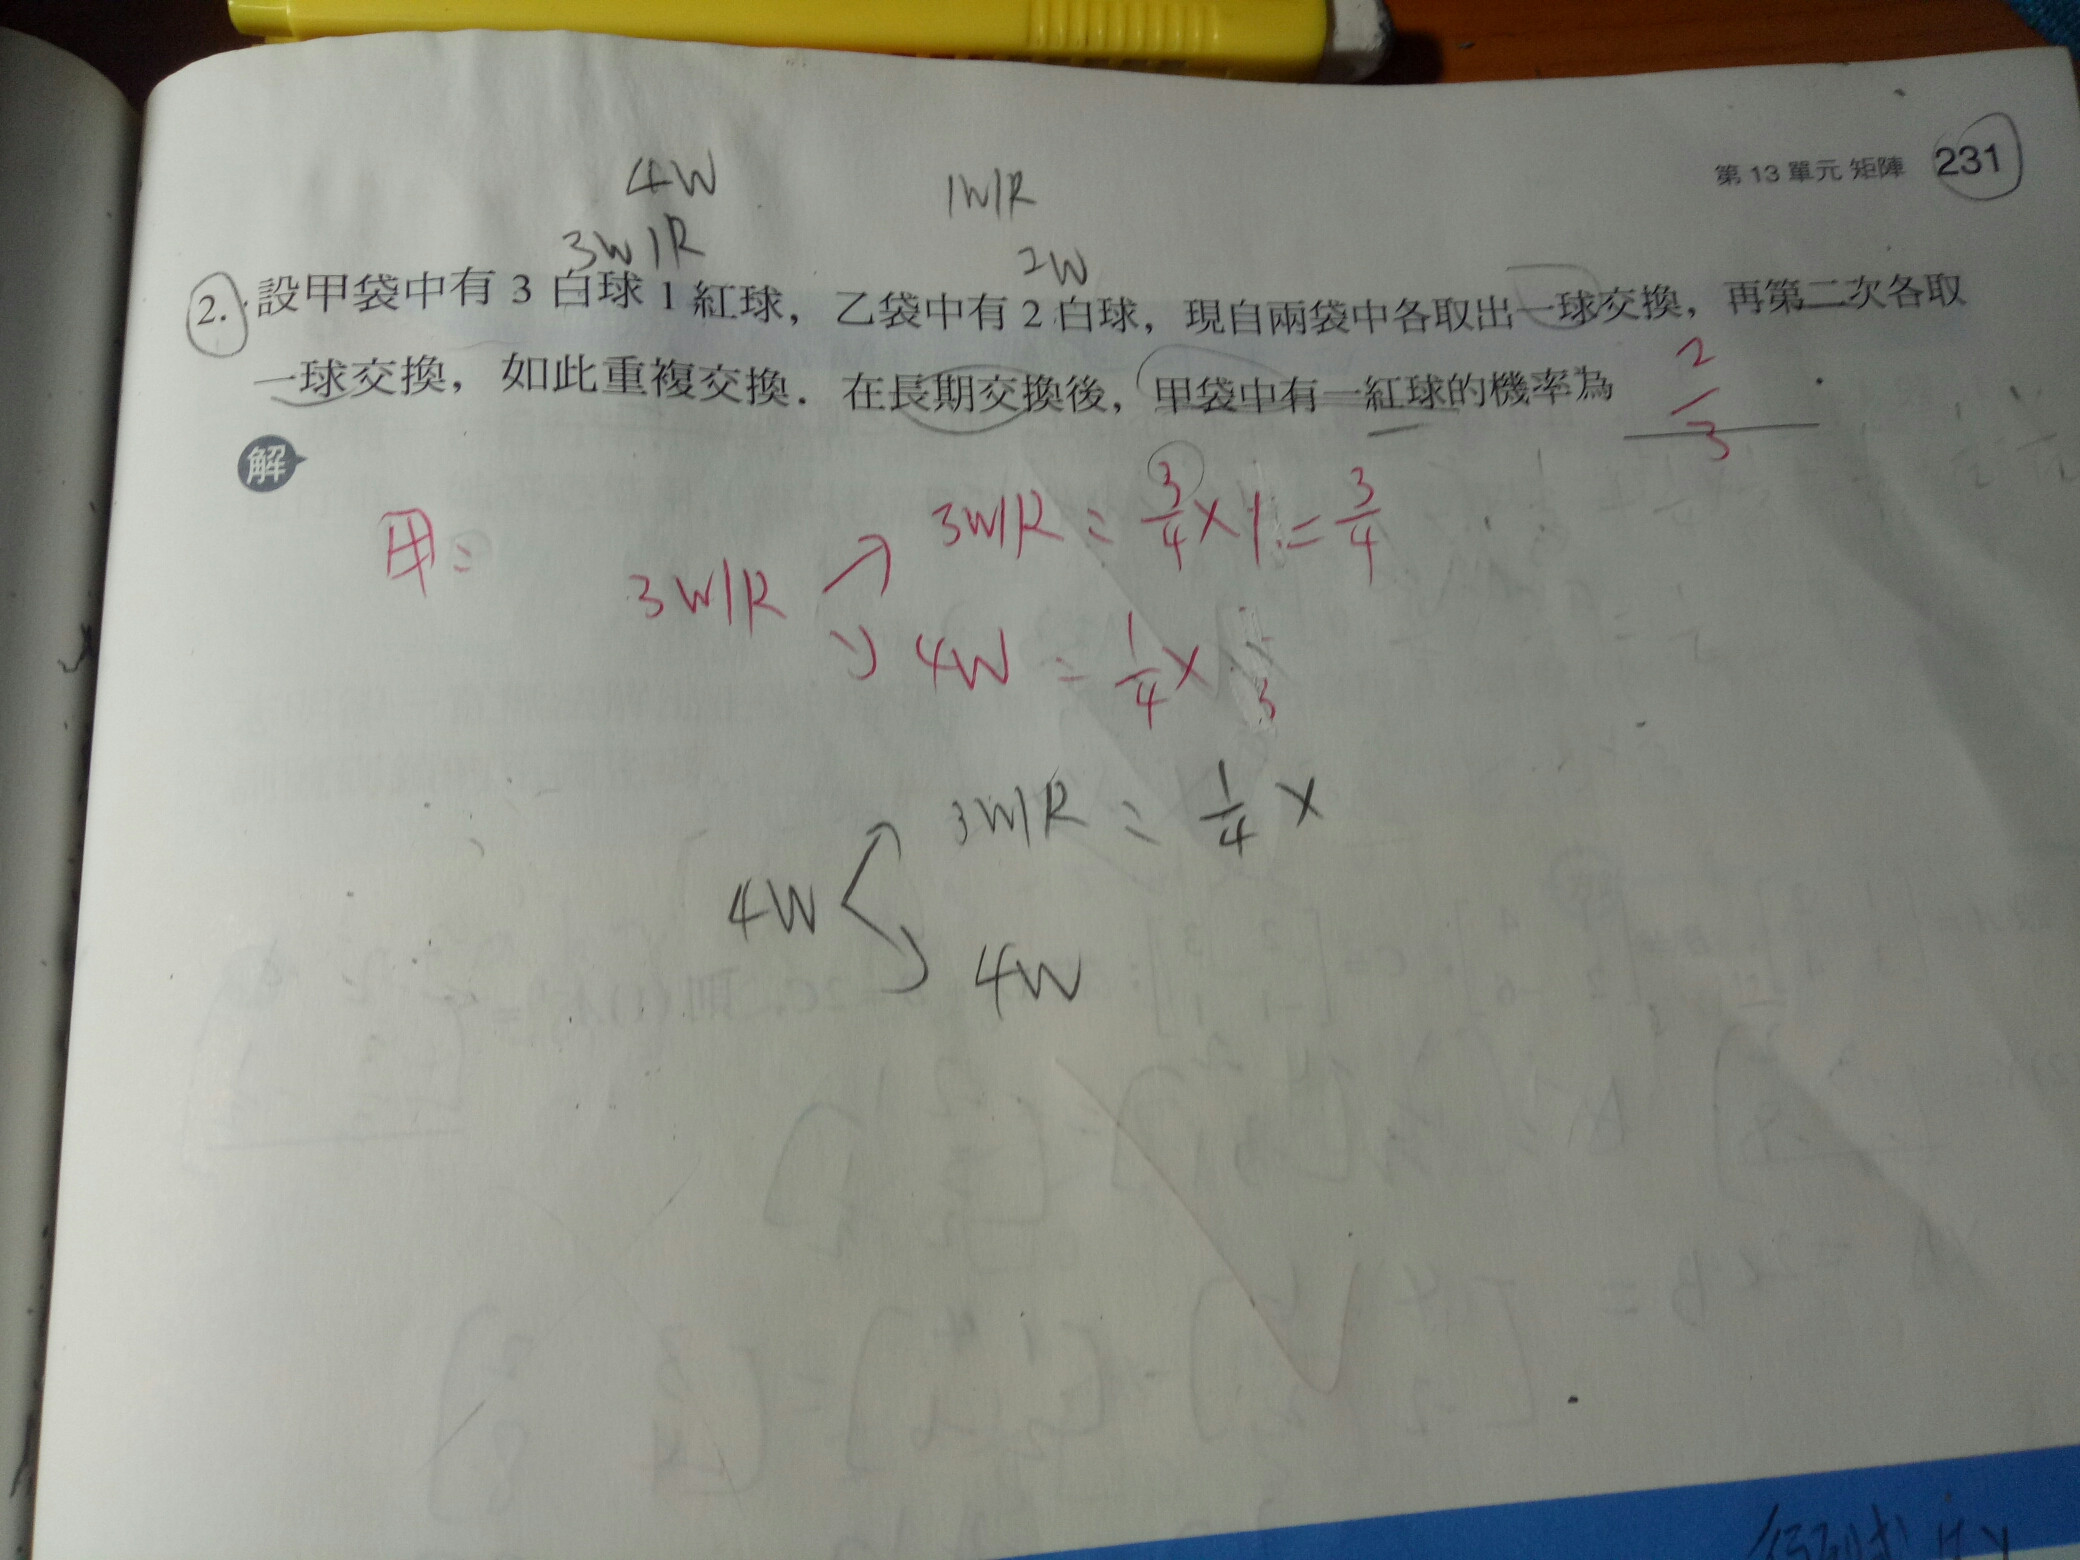 第 13 單元 矩陣 231
4W 1W1R
3W1R 2W
2. 設甲袋中有 3 白球 1 紅球，乙袋中有 2 白球，現自兩袋中各取出一球交換，再第二次各取
一球交換，如此重複交換．在長期交換後，甲袋中有一紅球的機率為 2/3 ．
解
甲:
3W1R = 3/4 × 1 = 3/4
3W1R
4W = 1/4 ×
3W1R = 1/4 ×
4W
4W